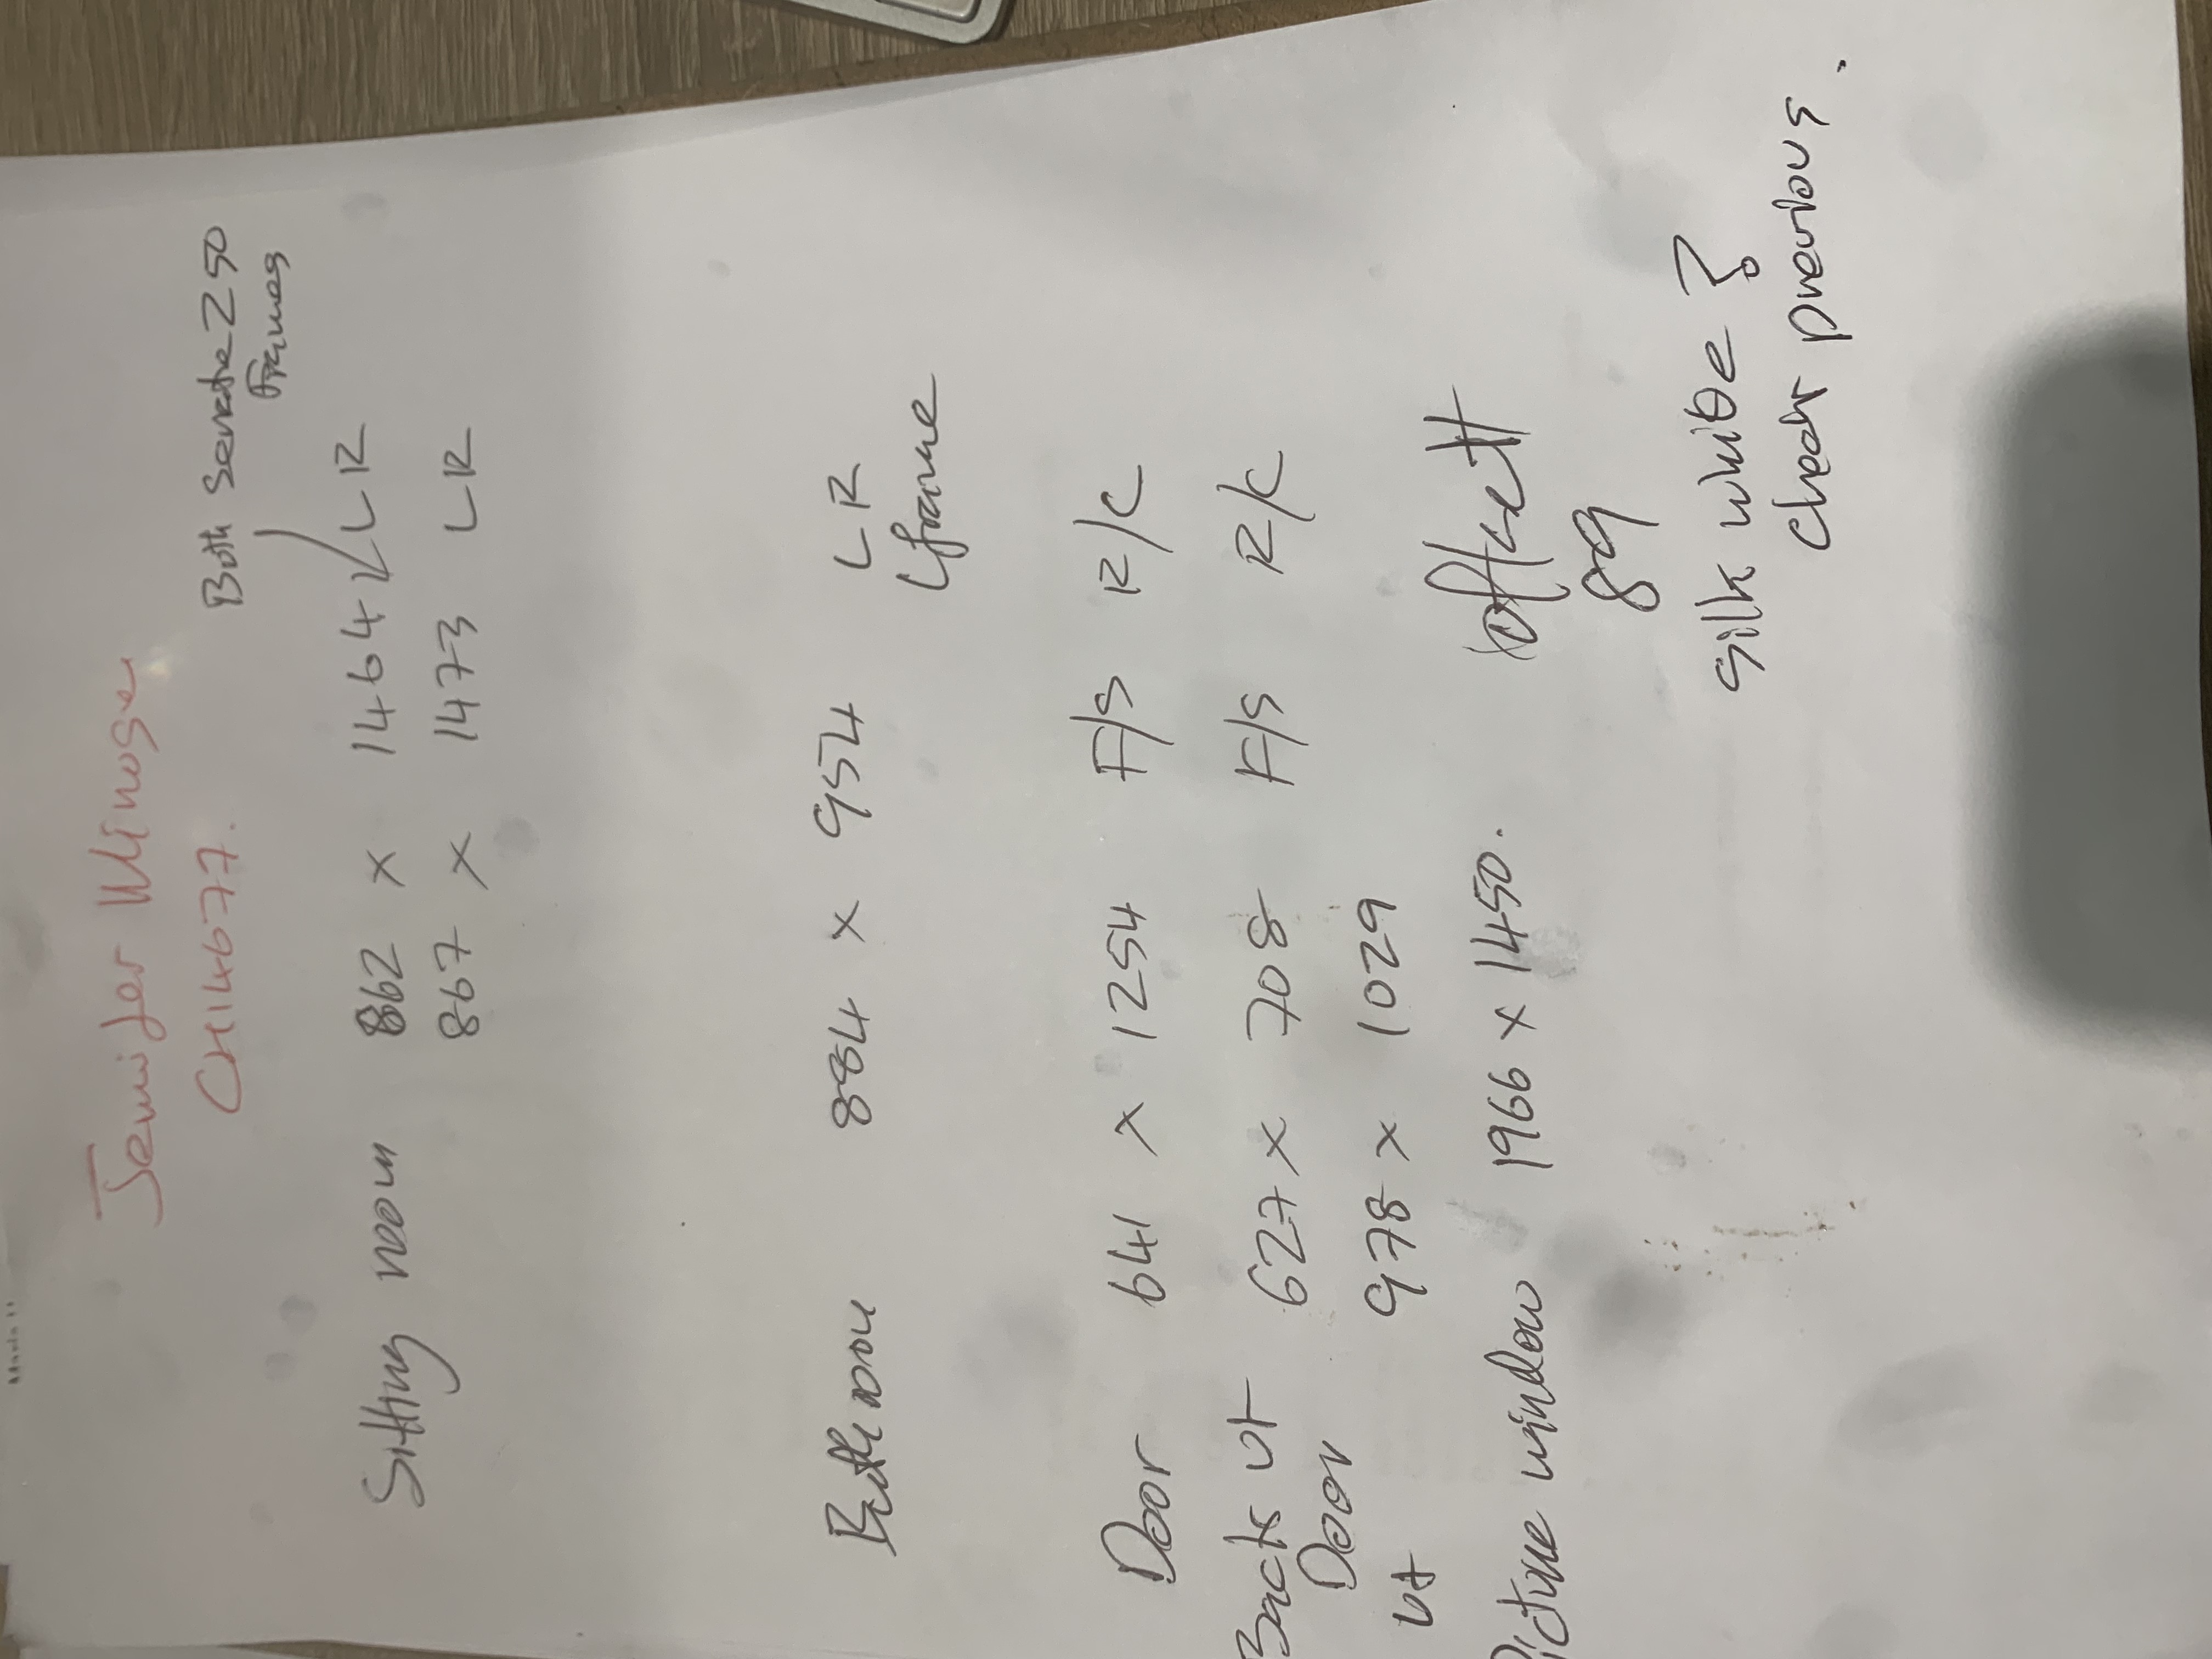 Jennifer
CH14677.
Both Z50
Frames
Sitting room 862 x 1464 LR
867 x 1473 LR
Bathroom 884 x 954 LR
L frame
Door 641 x 1254 F/S R/C
Back of 627 x 708 F/S R/C
Door
978 x 1029
Picture window 1966 x 1450. offset
89
Silk white ?
Check previous.